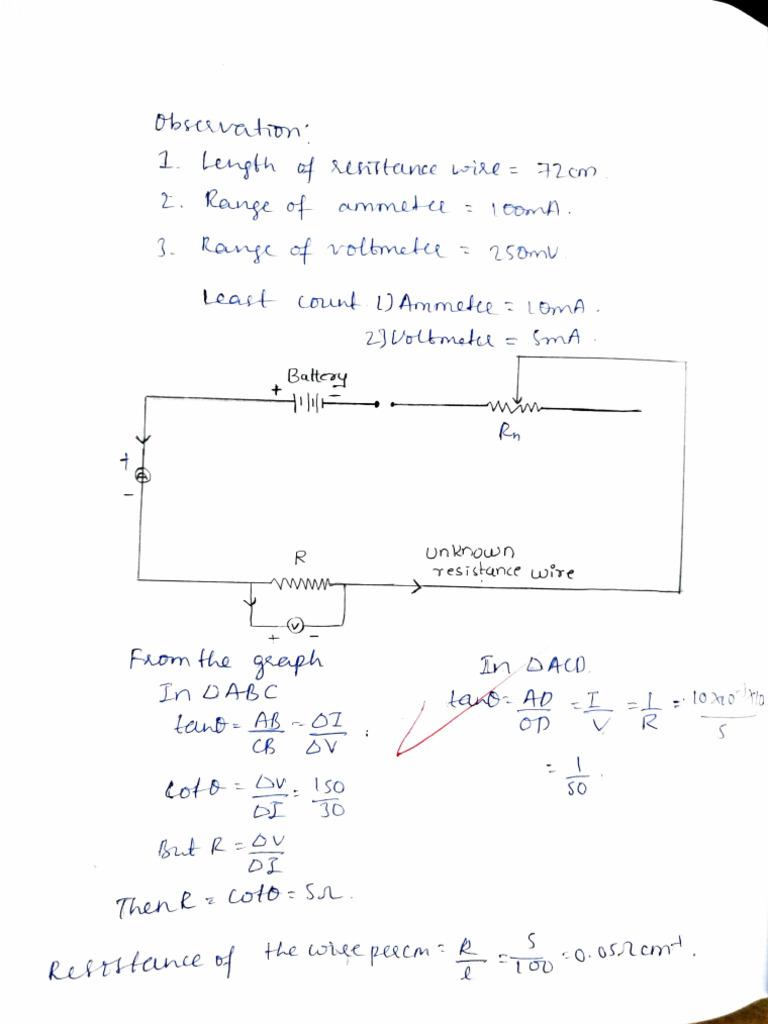 Observation:
1. Length of resistance wire = 72cm.
2. Range of ammeter = 100mA.
3. Range of voltmeter = 250mV.
Least count 1) Ammeter = 10mA.
2) Voltmeter = 5mA.
Battery
+ −
Rn
+
−
R
unknown
resistance wire
V
+ −
From the graph
In △ABC
tanθ = AB/CB = ΔI/ΔV ;
cotθ = ΔV/ΔI = 150/30
But R = ΔV/ΔI
Then R = cotθ = 5Ω.
In △ACD.
tanθ = AD/OD = I/V = 1/R =
= 1/50.
Resistance of the wire per cm = R/l = 5/100 = 0.05Ωcm⁻¹.